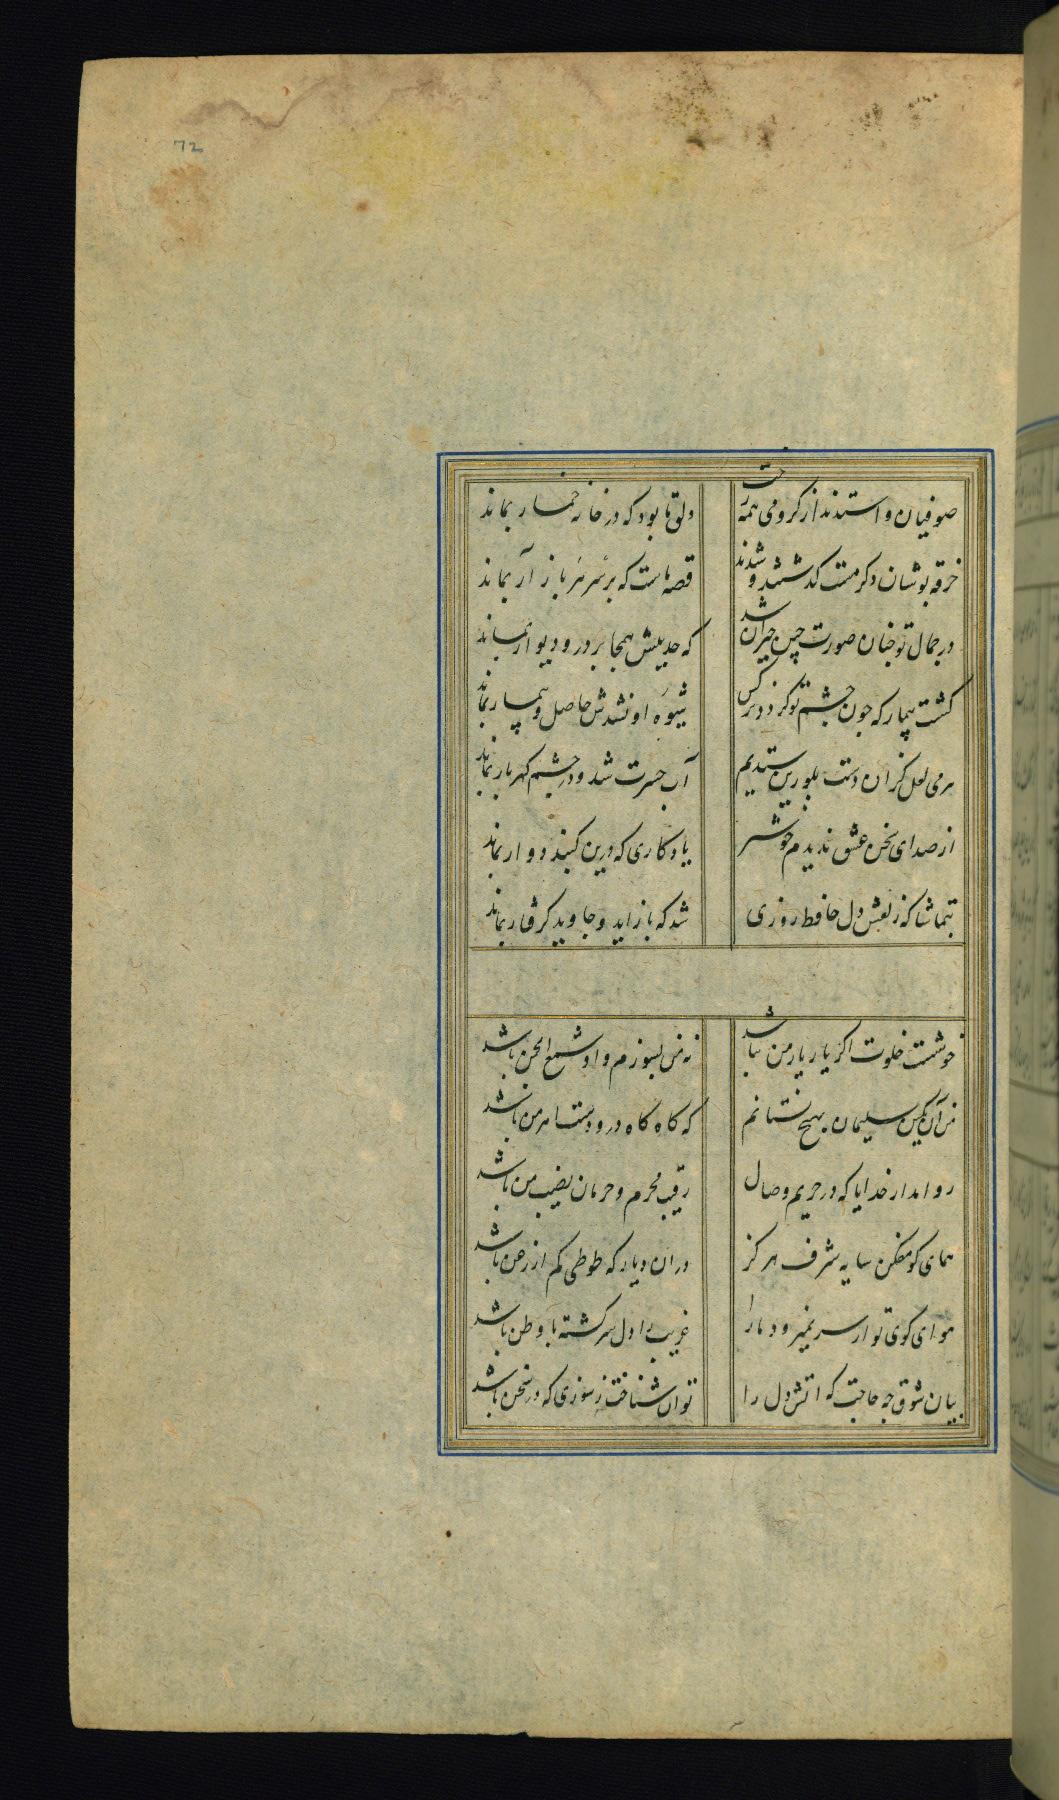 72
صوفیان واستدند از کرو می همه رخت
دلق ما بود که در خانه خمار بماند
خرقه پوشان دکر مست کذشتند و شدند
قصه ماست که بر سر هر بازار بماند
در جمال تو چنان صورت چین حیران شد
که حدیثش همه جا بر در و دیوار بماند
کشت بیمار که چون چشم تو کردد نرکس
شیوه او نشدش حاصل و بیمار بماند
هر می لعل کزان دست بلورین ستدیم
آب حسرت شد و در چشم کهربار بماند
از صدای سخن عشق ندیدم خوشتر
یادکاری که درین کنبد دوار بماند
بتماشاکه زلفش دل حافظ روزی
شد که باز اید و جاوید کرفتار بماند
خوشست خلوت اکر یار یار من باشد
نه من بسوزم و او شمع انجمن باشد
من آن نکین سلیمان بهیچ نستانم
که کاه کاه درو دست اهرمن باشد
روا مدار خدایا که در حریم وصال
رقیب محرم و حرمان نصیب من باشد
همای کو مفکن سایه شرف هرکز
در ان دیار که طوطی کم از زغن باشد
هوای کوی تو از سر نمیرود ما را
غریب را دل سرکشته با وطن باشد
بیان شوق چه حاجت که اتش دل را
توان شناخت ز سوزی که در سخن باشد